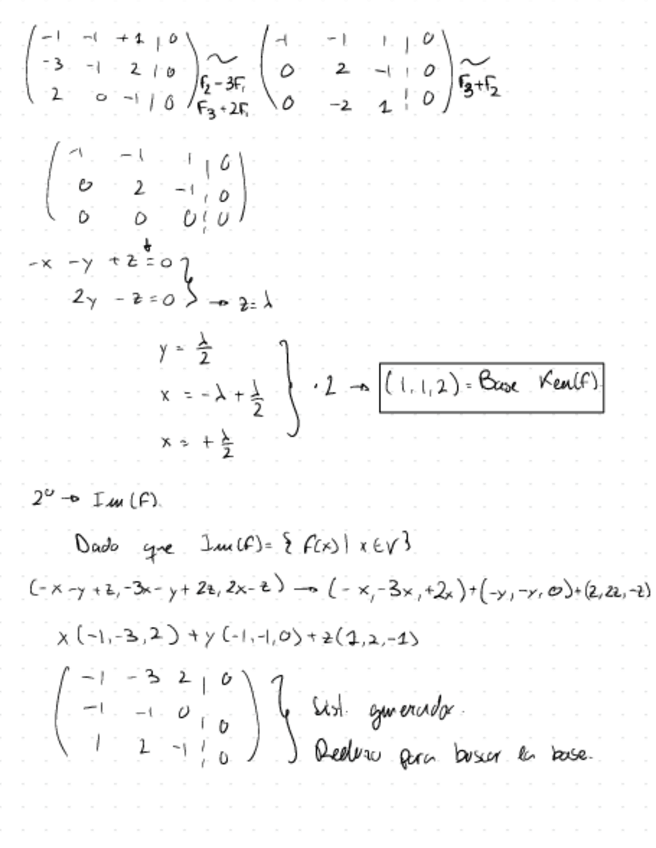 ( -1 -1 +1 | 0 ) ( -1 -1 1 | 0 )
( -3 -1 2 | 0 ) ~ F2-3F1 ( 0 2 -1 | 0 ) ~ F3+F2
( 2 0 -1 | 0 ) F3+2F1 ( 0 -2 1 | 0 )
( -1 -1 1 | 0 )
( 0 2 -1 | 0 )
( 0 0 0 | 0 )
-x -y +z = 0 }
2y -z = 0 } → z = λ
y = λ/2
x = -λ + λ/2 } · 2 → (1,1,2) = Base Ker(f)
x = + λ/2
2º → Im(f).
Dado que Im(f) = { f(x) | x ∈ V }
(-x -y + z, -3x - y + 2z, 2x - z) → (-x, -3x, +2x) + (-y, -y, 0) + (z, 2z, -z)
x(-1,-3,2) + y(-1,-1,0) + z(1,2,-1)
( -1 -3 2 | 0 )
( -1 -1 0 | 0 ) } Sist. generador.
( 1 2 -1 | 0 ) Reduzco para buscar la base.